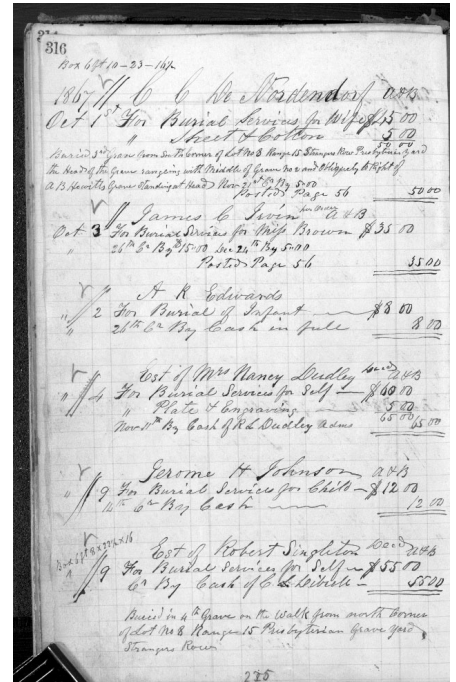 316
Box 6ft 10-23-16½
1867 C C De Nordendorf A&B
Oct 1st For Burial Services for Wife $45 00
" Sheet & Cotton 5 00
50 00
Buried 3rd Grave from South corner of Lot No 3 Range 15 Strangers Row Presbyterian Yard
the Head of the Grave ranging with Middle of Grave No 2 and Obliquely to right of
A B Hewitts Grave Standing at Head Nov 21st Cr By 5.00
Posted Page 56 50 00
James C Irvin A&B
Oct 3 For Burial Services for Miss Brown $35 00
" 26th Cr By $15.00 Dec 24th By 5.00
Posted Page 56 35 00
A R Edwards
" 2 For Burial of Infant $8 00
" 26th Cr By Cash in full 8 00
Est of Mrs Nancy Dudley Decd A&B
" 4 For Burial Services for Self $60 00
" Plate & Engraving 5 00
65 00
Nov 11th By Cash of R L Dudley Adms 65 00
Jerome H Johnson A&B
" 9 For Burial Services for Child $12 00
14th Cr By Cash 12 00
Box 6ft 8 x 22½ x 16
Est of Robert Singliton Decd A&B
9 For Burial Services for Self $55 00
Cr By Cash of C L 55 00
Buried in 4th Grave on the Walk from north Corner
of Lot No 8 Range 15 Presbyterian Grave Yard
Strangers Row